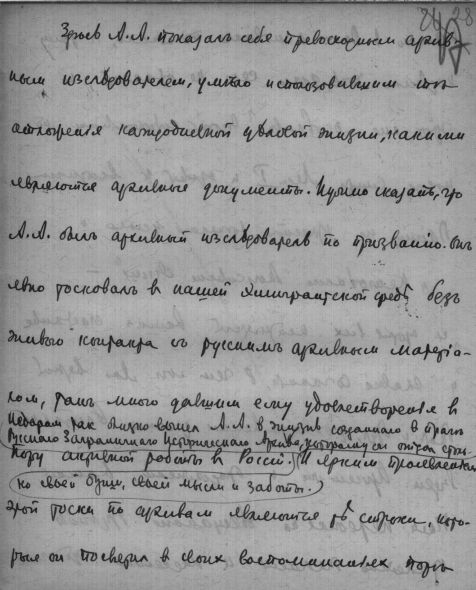 28
Здѣсь А.А. показалъ себя превосходнымъ архив-
нымъ изслѣдователемъ, умѣло использовавшимъ
отложенія каждодневной дѣловой жизни, какими
являются архивные документы. Нужно сказать, что
А.А. былъ архивный изслѣдователь по призванію. Онъ
явно тосковалъ в нашей эмигрантской средѣ безъ
живого контакта съ русскимъ архивнымъ матеріа-
ломъ, такъ много давшим ему удовлетворенія в
Недаромъ так близко вошел А.А. в жизнь созданного в Прагѣ
Русскаго Заграничнаго Историческаго Архива, которому он отдал столь-
пору активной работы в Россіи. И яркимъ проявленіем
ко своей души, своей мысли и заботы.
этой тоски по архивам являются тѣ строки, кото-
рые он посвятил в своих воспоминаніях